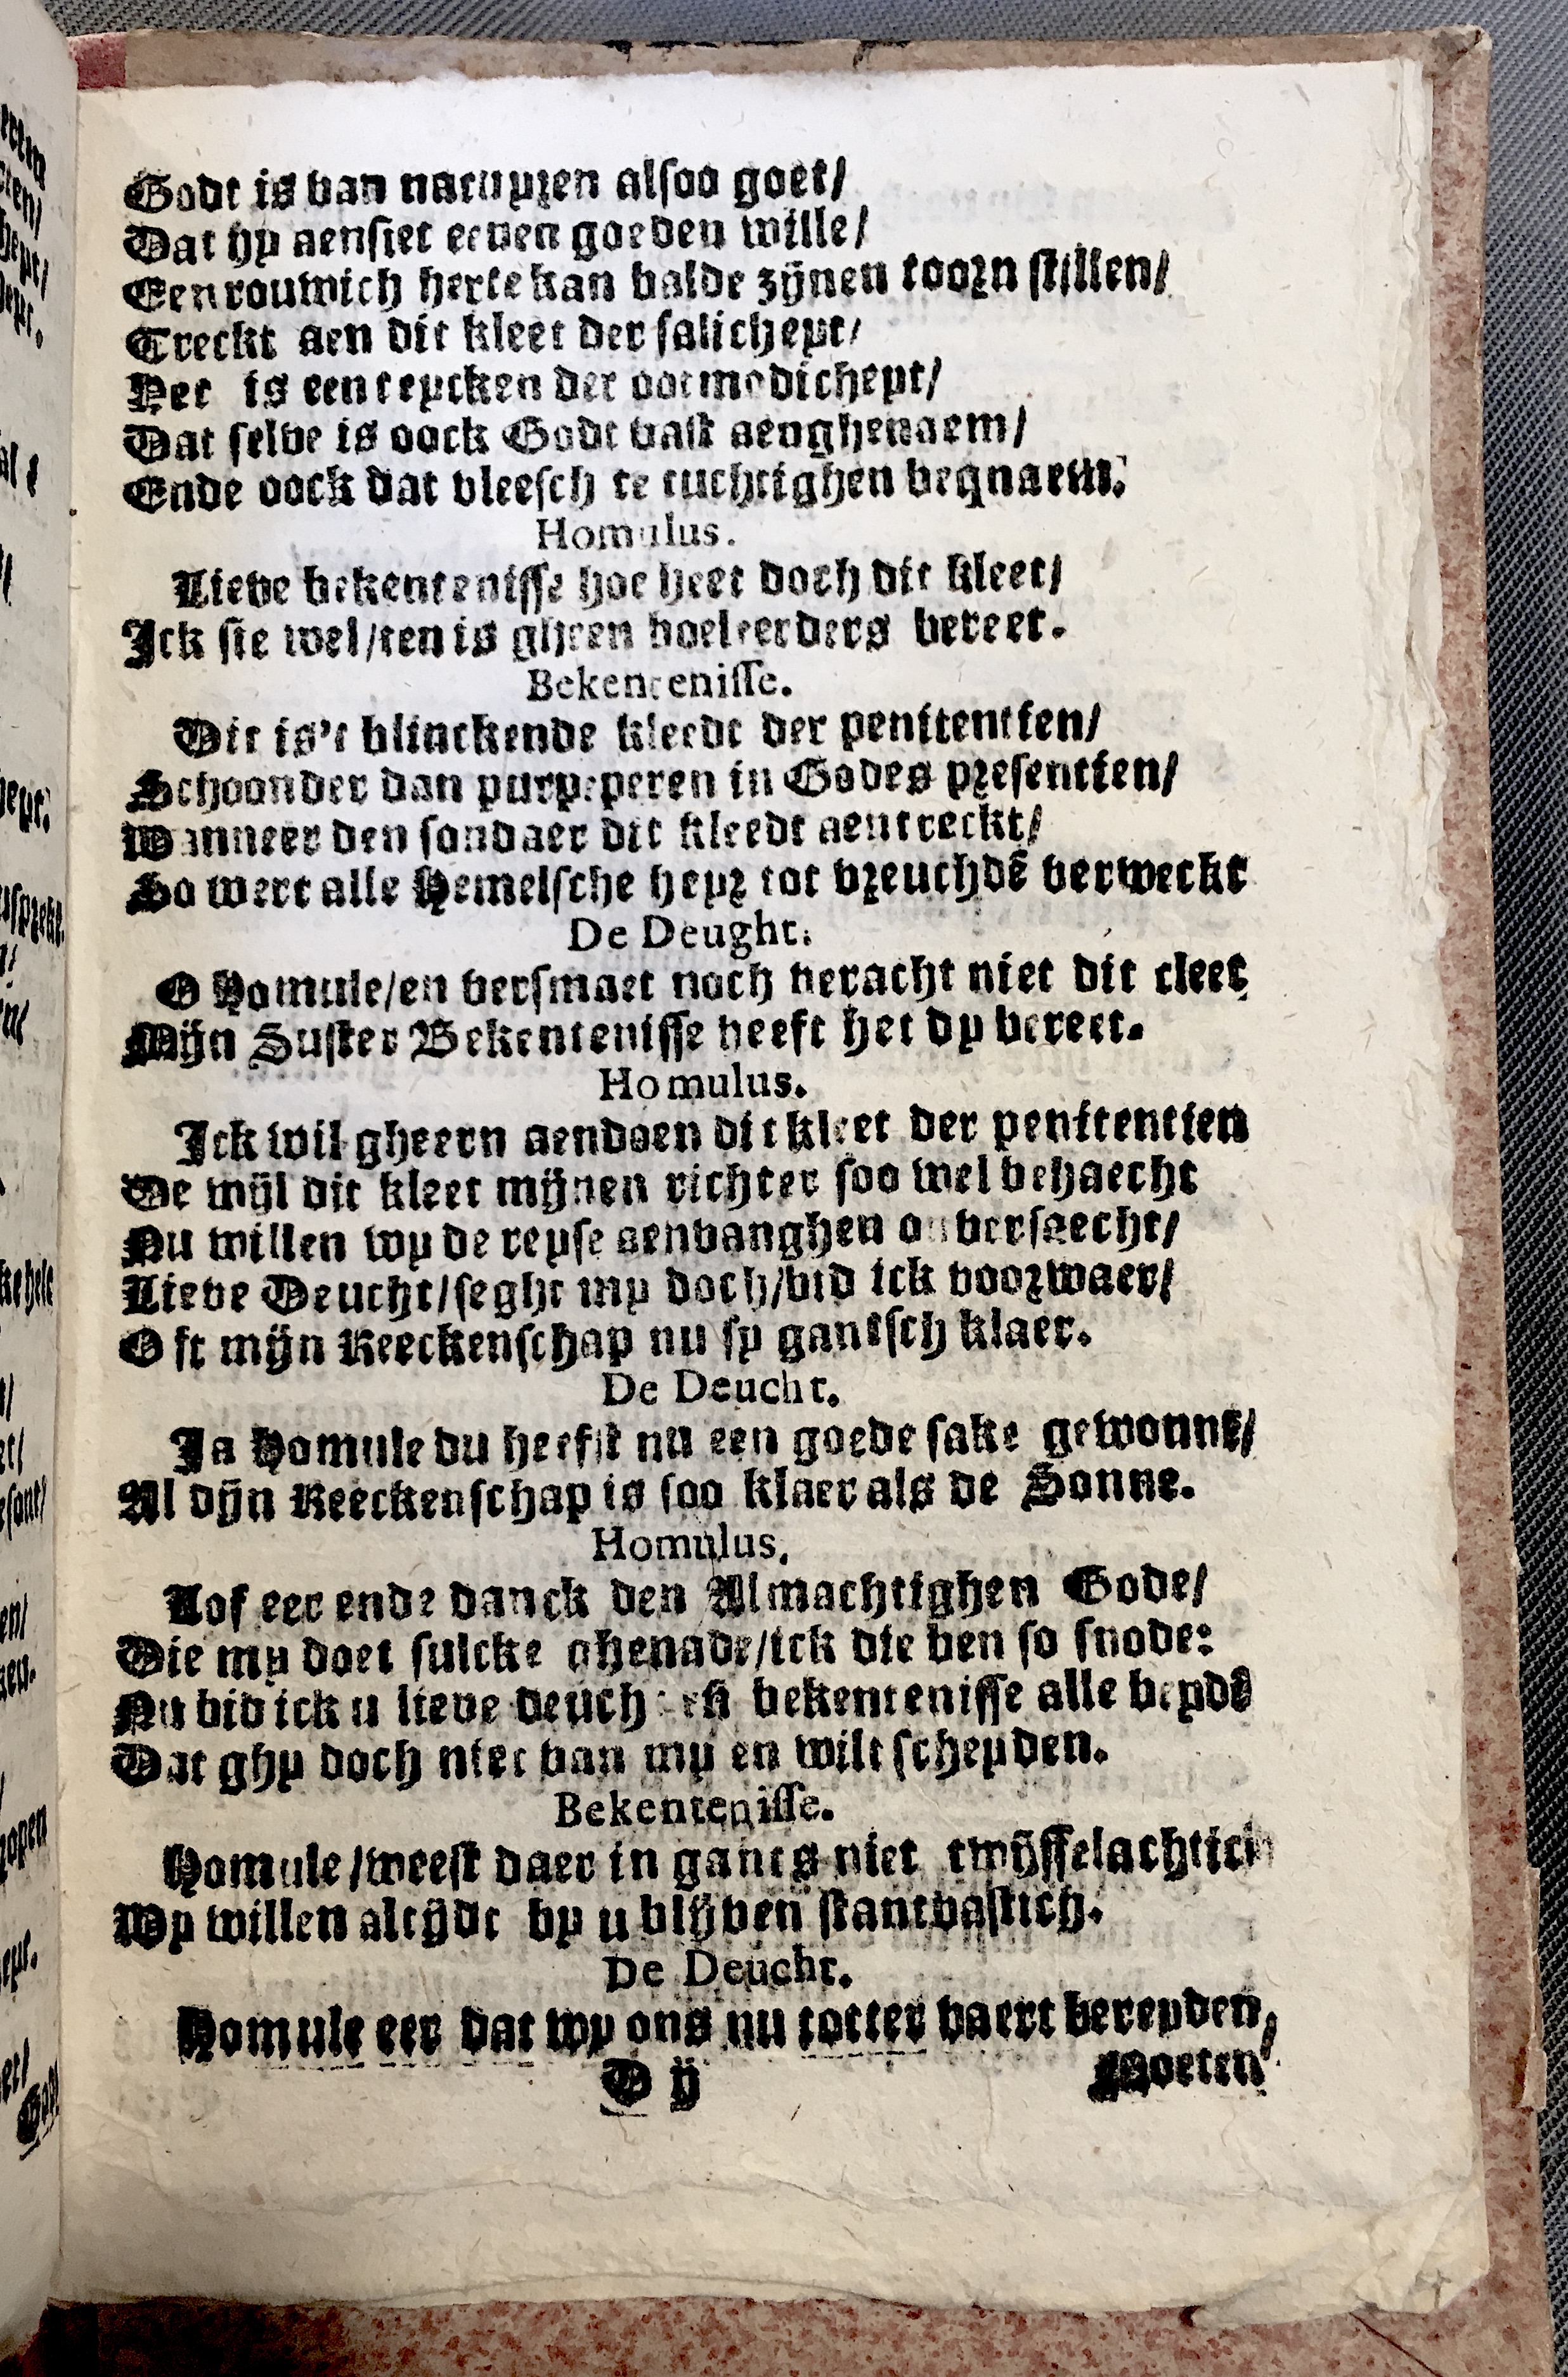 Godt is van natuyren alsoo goet/
Dat hy aensiet eenen goeden wille/
Een rouwich herte kan balde zijnen toorn stillen/
Treckt aen dit kleet der salicheyt/
Het is een teycken der ootmodicheyt/
Dat selve is oock Godt vast aenghenaem/
Ende oock dat vleesch te tuchtighen beqnaem.
Homulus.
Lieve bekentenisse hoe heet doch dit kleet/
Ick sie wel/ten is gheen boeleerders bereet.
Bekentenisse.
Dit is't blinckende kleedt der penitentien/
Schoonder dan purpeperen in Godes presentien/
Wanneer den sondaer dit kleedt aentreckt/
So wert alle Hemelsche heyr tot vreuchdē verweckt
De Deught.
O Homule/en versmaet noch veracht niet dit cleet
Mijn Suster Bekentenisse heeft het dy bereet.
Homulus.
Ick wil gheern aendoen dit kleet der penitentien
De wijl dit kleet mijnen richter soo wel behaecht
Nu willen wy de reyse aenvanghen onversaecht/
Lieve Deucht/seght my doch/bid ick voorwaer/
Oft mijn Reeckenschap nu sy gantsch klaer.
De Deucht.
Ja Homule du heefst nu een goede sake gewonnē/
Al dijn Reeckenschap is soo klaer als de Sonne.
Homulus.
Lof eer ende danck den Almachtighen Gode/
Die my doet sulcke ghenade/ick die ben so snode:
Nu bid ick u lieve deucht eñ bekentenisse alle beydē
Dat ghy doch niet van my en wilt scheyden.
Bekentenisse.
Homule/weest daer in gants niet twijffelachtich
Wy willen altijdt by u blijven stantvastich.
De Deucht.
Homule eer dat wy ons nu totter vaert bereyden,
D ij
Moeten